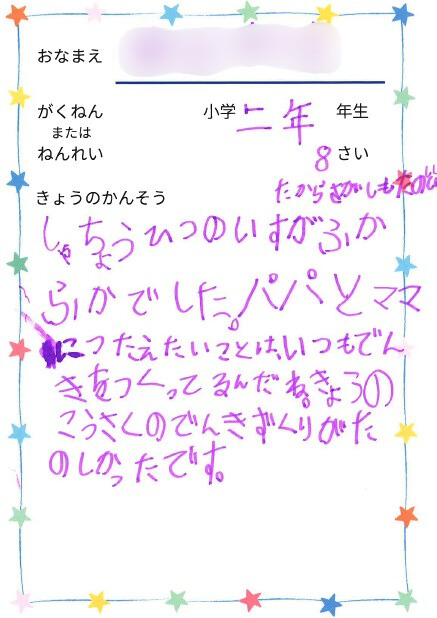 おなまえ
がくねん
または
ねんれい
小学 二年 年生
8 さい
きょうのかんそう
たからさがしも
しゃちょうひつのいすがふか
ふかでした。パパとママ
につたえたいことは、いつもでん
きをつくってるんだね。きょうの
こうさくのでんきずくりがた
のしかったです。